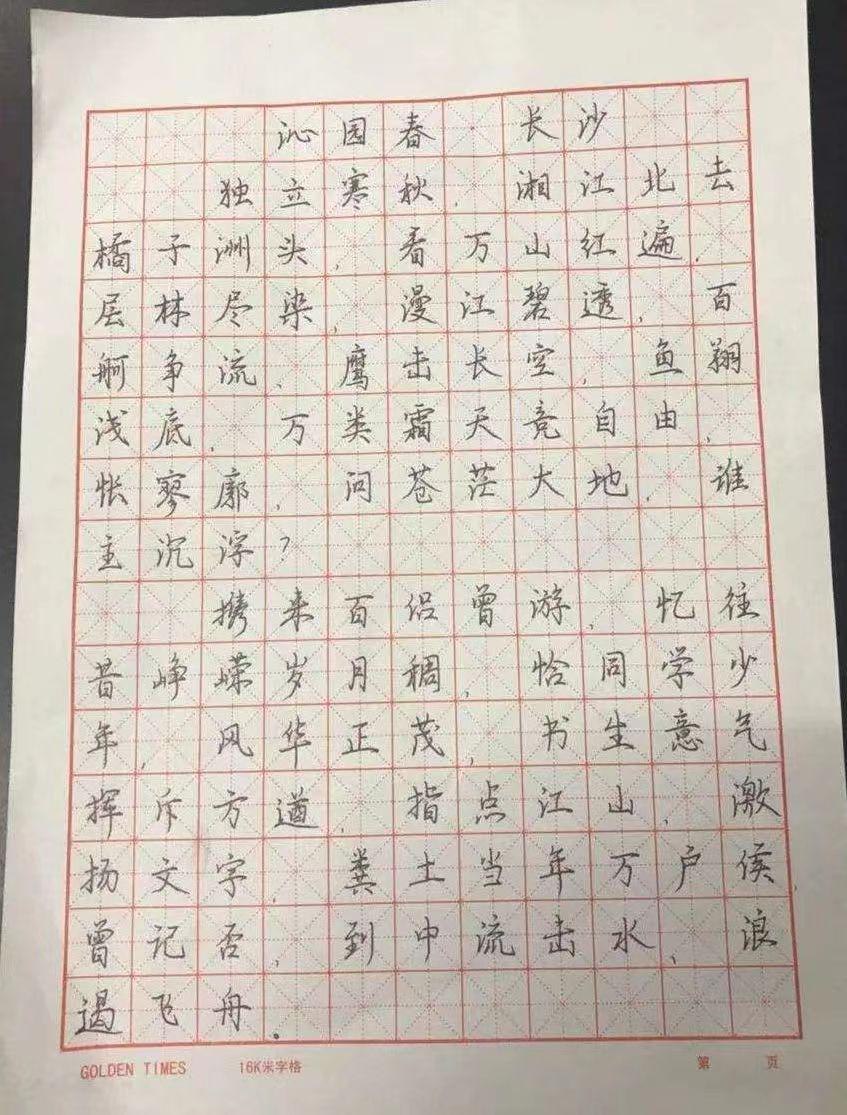 沁园春·长沙
独立寒秋，湘江北去
橘子洲头，看万山红遍，
层林尽染，漫江碧透，百
舸争流，鹰击长空，鱼翔
浅底，万类霜天竞自由，
怅寥廓，问苍茫大地，谁
主沉浮？
携来百侣曾游，忆往
昔峥嵘岁月稠，恰同学少
年，风华正茂，书生意气
挥斥方遒，指点江山，激
扬文字，粪土当年万户侯，
曾记否，到中流击水，浪
遏飞舟.
GOLDEN TIMES 16K米字格 第 页